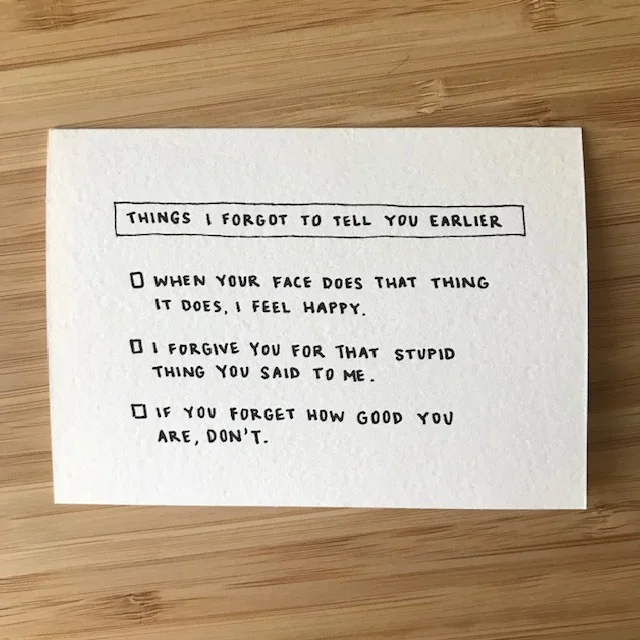 THINGS I FORGOT TO TELL YOU EARLIER
WHEN YOUR FACE DOES THAT THING
IT DOES, I FEEL HAPPY.
I FORGIVE YOU FOR THAT STUPID
THING YOU SAID TO ME.
IF YOU FORGET HOW GOOD YOU
ARE, DON'T.